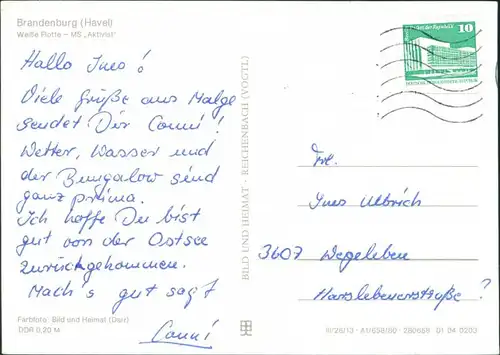 Brandenburg (Havel)
Weiße Flotte – MS „Aktivist"
Hallo Ines!
Viele Grüße aus Malge
sendet Dir Conni!
Wetter, Wasser und
der Bungalow sind
ganz prima.
Ich hoffe Du bist
gut von der Ostsee
zurückgekommen.
Mach's gut sagt
Conni
Farbfoto: Bild und Heimat (Darr)
DDR 0,20 M
BILD UND HEIMAT · REICHENBACH (VOGTL)
10
Frl.
Ines Ulbrich
3607 Wegeleben
Harslebenerstraße?
III/26/13 · A1/658/80 · 280659 01 04 0203